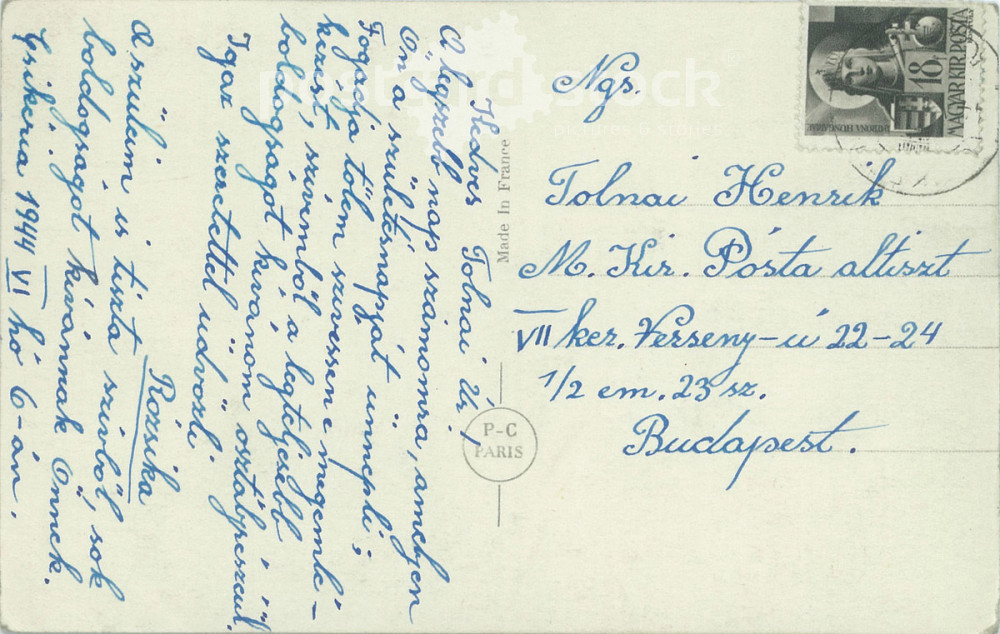 Kedves Tolnai Úr!
A legszebb nap számomra, amelyen
Ön a születésnapját ünnepli;
Fogadja tőlem szivessen e megemlé-
kezést, szivemből a legteljesebb
boldogságot kivánom
Igaz szeretettel üdvözli
Rózsika
A szüleim is tiszta szivből, sok
boldogságot kívánnak Önnek.
Csikéria 1944 VI hó 6-án.
Made In France
P-C
PARIS
Ngs.
Tolnai Henrik
M. Kir. Pósta altiszt
VII ker. Verseny-ú 22-24
1/2 em. 23 sz.
Budapest.
18
MAGYAR KIR. POSTA
PATRONA HUNGARIAE
postcardstock
pictures & stories